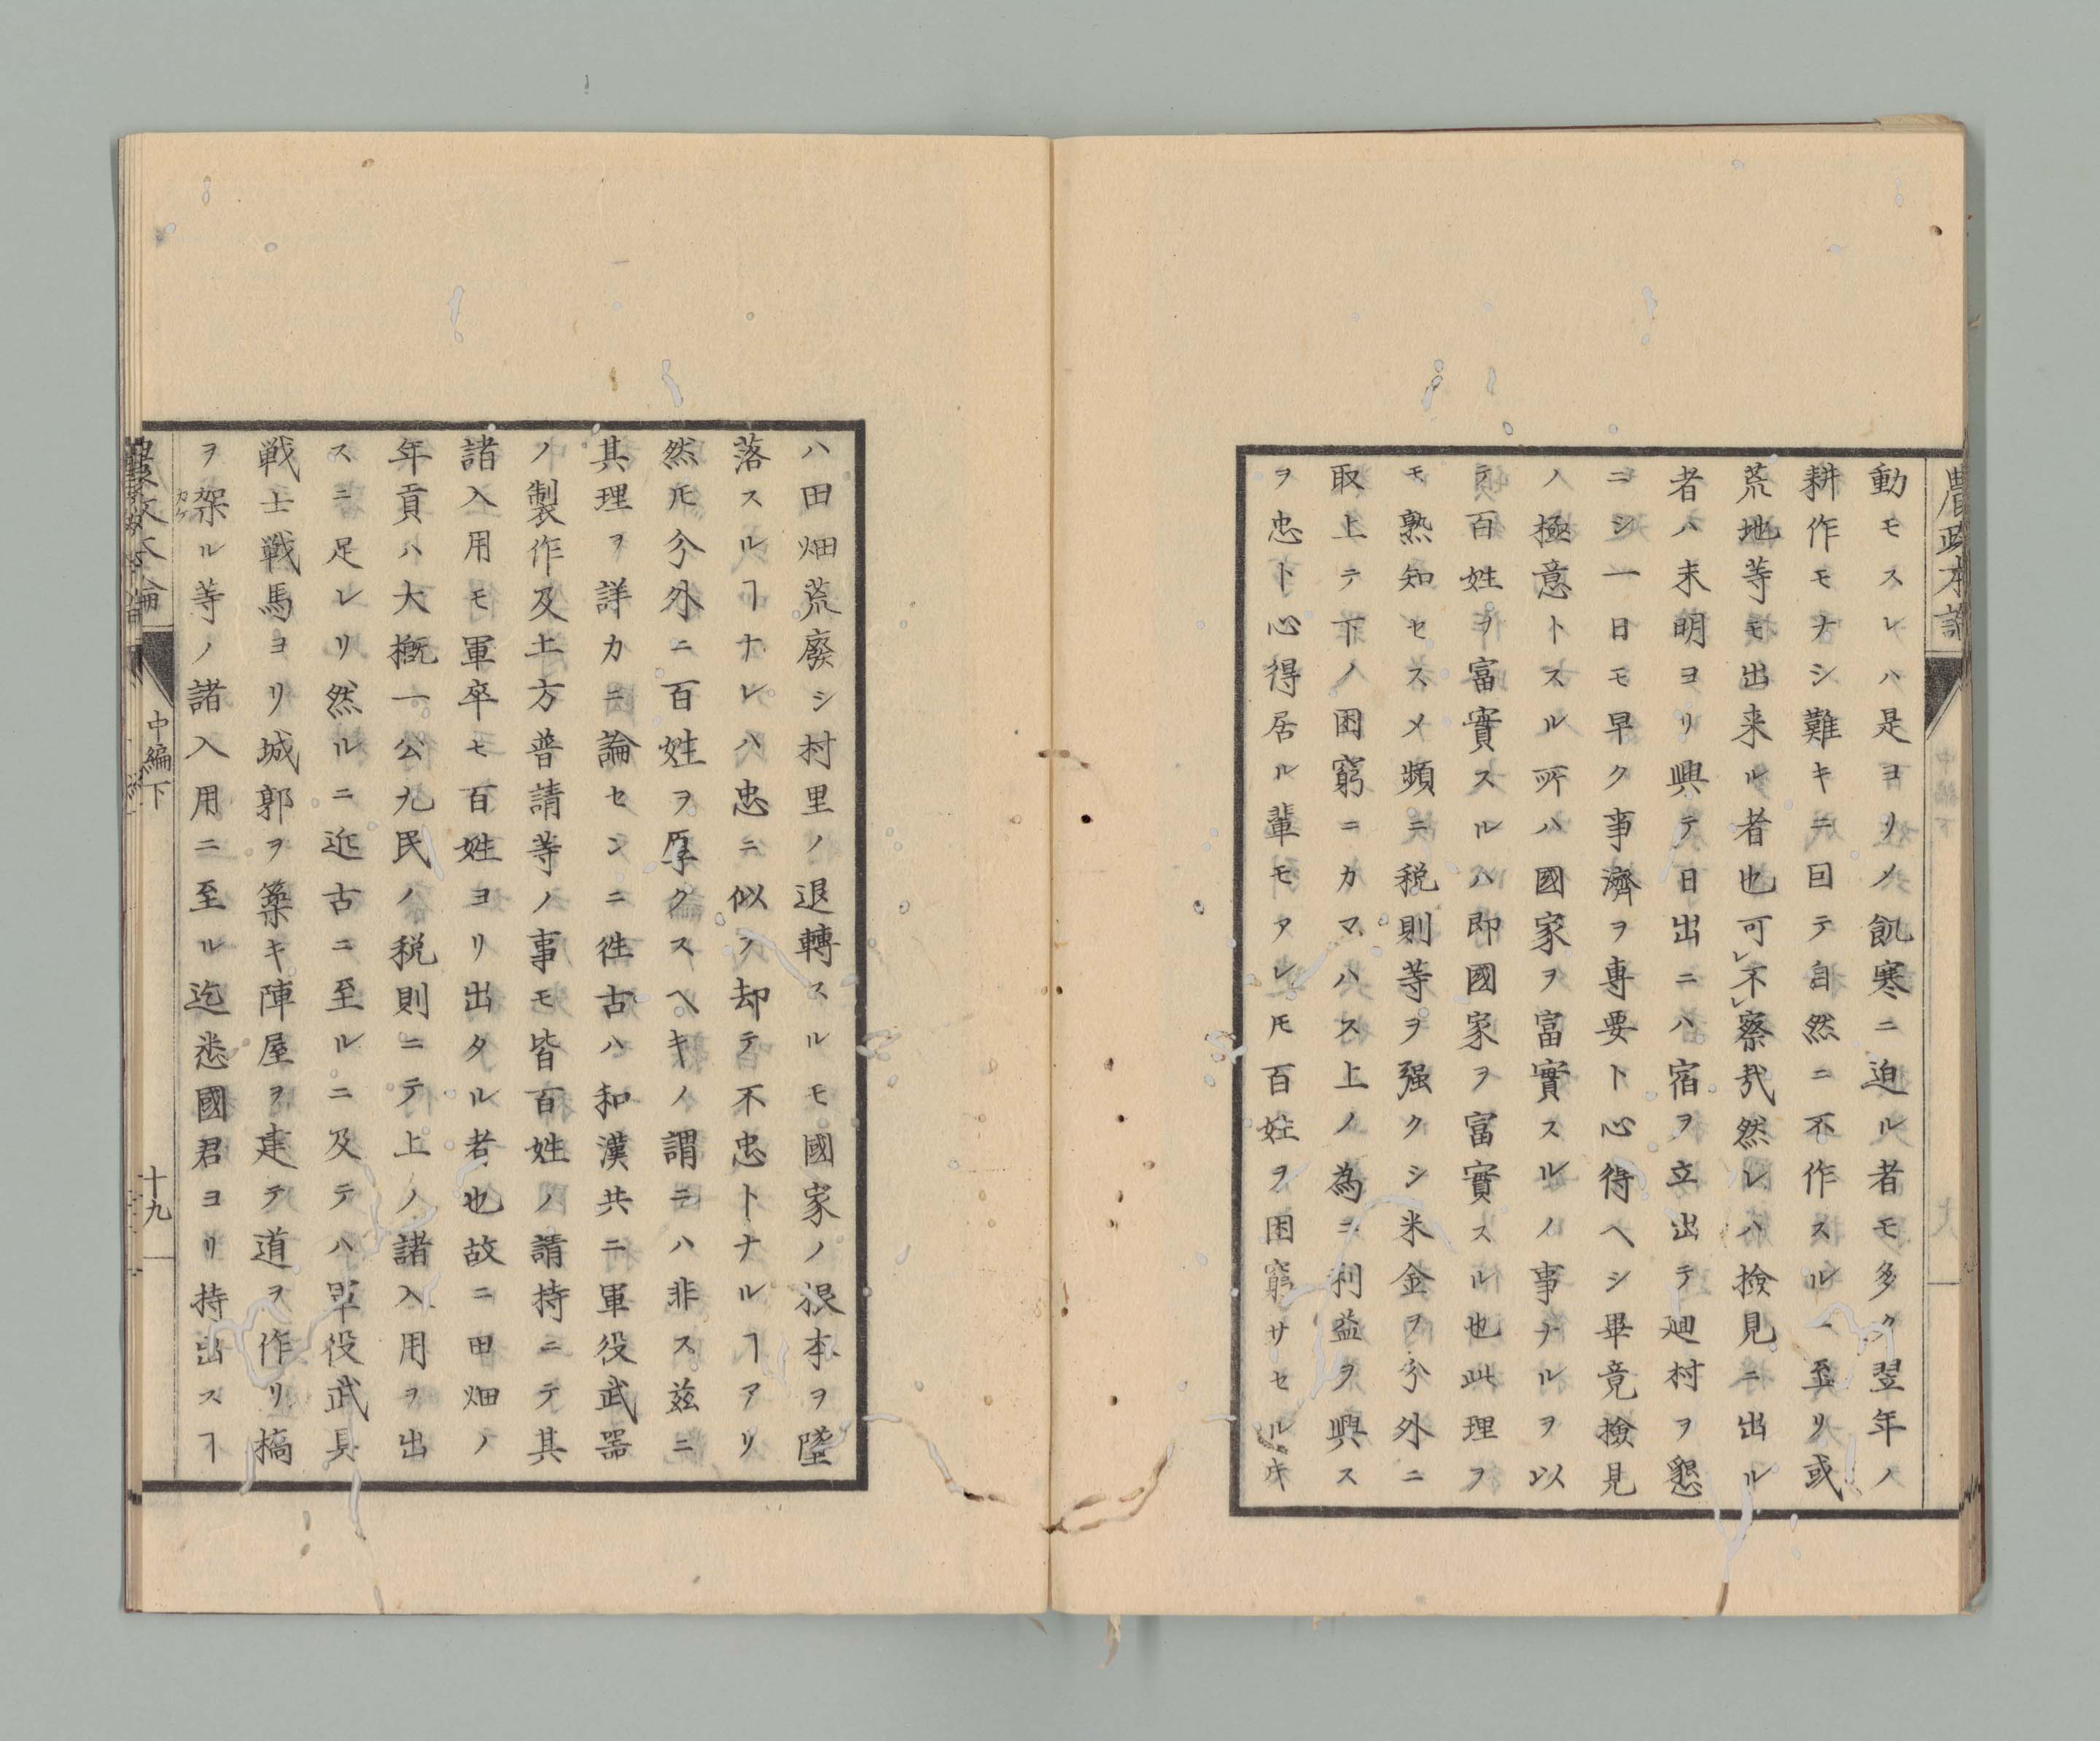 農政本論
動モスレハ是ヨリノ飢寒ニ迫ル者モ多ク翌年ノ
耕作モナシ難キニ因テ自然ニ不作スルニ至リ或
荒地等モ出来ル者也可レ不レ察哉然レハ撿見ニ出ル
者ハ未明ヨリ興テ日出ニハ宿ヲ立出テ廻村ヲ懇
ニシ一日モ早ク事濟ヲ専要ト心得ヘシ畢竟撿見
ノ極意トスル所ハ國家ヲ富實スルノ事ナルヲ以
テ百姓ヲ富實スルハ即國家ヲ富實スル也此理ヲ
モ熟知セスメ頻ニ税則等ヲ强クシ米金ヲ分外ニ
取上テ下ノ困窮ニカマハス上ノ為ニ利益ヲ興ス
ヲ忠ト心得居ル輩モアレ𪜈百姓ヲ困窮サセル𪜈
ハ田畑荒廢シ村里ノ退轉スルモ國家ノ根本ヲ墜
落スルヿナレハ忠ニ似テ却テ不忠トナルヿアリ
然𪜈分外ニ百姓ヲ厚クスヘキノ謂ニハ非ス茲ニ
其理ヲ詳カニ論センニ徃古ハ和漢共ニ軍役武器
ノ製作及土方普請等ノ事モ皆百姓ノ請持ニテ其
諸入用モ軍卒モ百姓ヨリ出タル者也故ニ田畑ノ
年貢ハ大概一公九民ノ税則ニテ上ノ諸入用ヲ出
スニ足レリ然ルニ近古ニ至ルニ及テハ軍役武具
戦士戦馬ヨリ城郭ヲ築キ陣屋ヲ建テ道ヲ作リ橋
ヲ架ル等ノ諸入用ニ至ル迄悉國君ヨリ持出スヿ
カケ
農政本論 中編下 十九